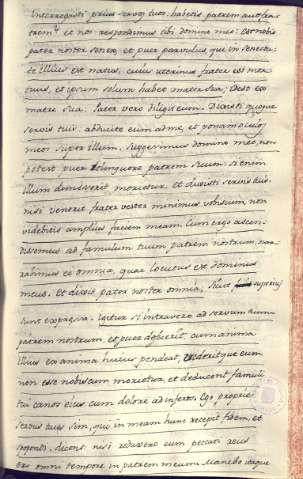 Interrogasti prius servos tuos: habetis patrem aut fra-
trem? et nos respondimus tibi domino meo: est nobis
pater noster senex, et puer parvulus, qui in senectu-
te illius est natus, cuius uterinus frater est mor-
tuus, et ipsum solum habet mater sua,
matre sua. Pater vero diligit eum. Dixisti quoque
servis tuis. adducite eum ad me, et ponam oculos
meos super illum. Suggessimus domino meo, non
potest puer relinquere patrem suum. Si enim
illum dimiserit morietur. et dixisti servis tuis.
nisi venerit frater vester minimus vobiscum, non
videbitis amplius faciem meam. Cum ergo ascen-
dissemus ad famulum tuum patrem nostrum, nar-
rabimus ei omnia, quae locutus est dominus
meus. Et dixit pater noster omnia, sicut superius
sunt Igitur si intravero ad servum tuum
patrem nostrum, et puer defuerit, cum anima
illius ex anima huius pendeat, videritque eum
non esse nobiscum morietur, et deducent famuli
tui canos eius cum dolore ad inferos. Ego proprie
servus tuus sim, qui in meam hunc recepi fidem, et
spopondi, dicens, nisi reduxero eum peccati reus
ero omni tempore in patrem meum. Manebo itaque